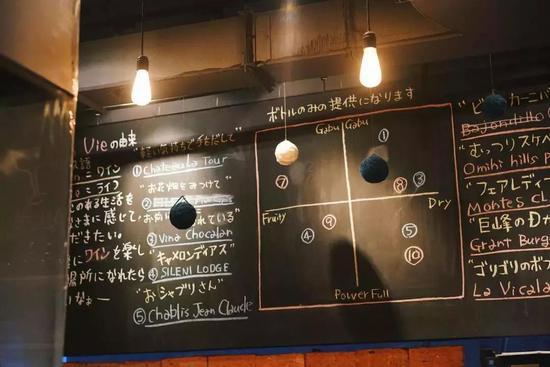 Vieの由来
ワイン
ライフ
生活を
感じて
だきたい。
にワインを楽し
場所になれたら
いなぁー
"軽い気持ちで手をだして"
① Chateau La Tour
"お花畑をみつけて"
②
"お前 れている"
③ Vina Chocalan
"キャメロンディアス"
④ SILENI LODGE
"おシャブリさん"
⑤ Chablis Jean Claude
ボトルのみの提供になります
Gabu Gabu
①
⑦
⑧
③
Fruity
Dry
④
⑨
⑤
⑩
Power Full
"ビ カーニバ
"むっつりスケベ
Omihi hills
"フェアレディ
Montes Cl
"巨峰のDカ
Grant Burg
"ゴリゴリのボ
La Vicala